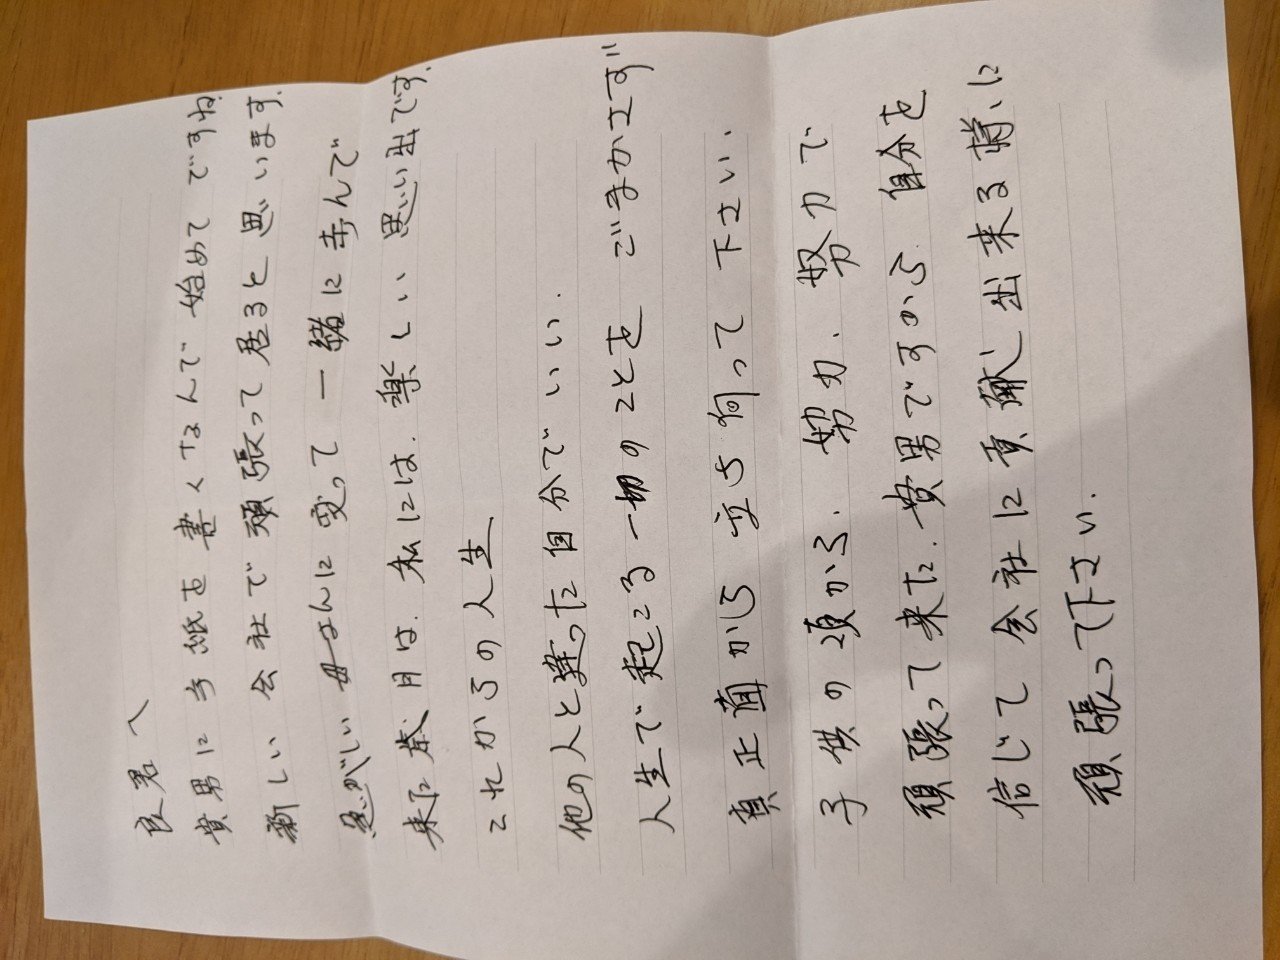 良君へ
貴男に手紙を書くなんて始めてですね
新しい会社で頑張って居ると思います.
忙がしい母さんに変って一緒に歩んで
来た歳月は.私には.楽しい思い出です.
これからの人生
他の人と違った自分でいい.
人生で起こる一切のことをごまかさず"
真正面から立ち向って下さい.
子供の頃から.努力、努力で
頑張って来た.貴男ですから.自分を
信じて会社に貢献出来る様に
頑張って下さい.